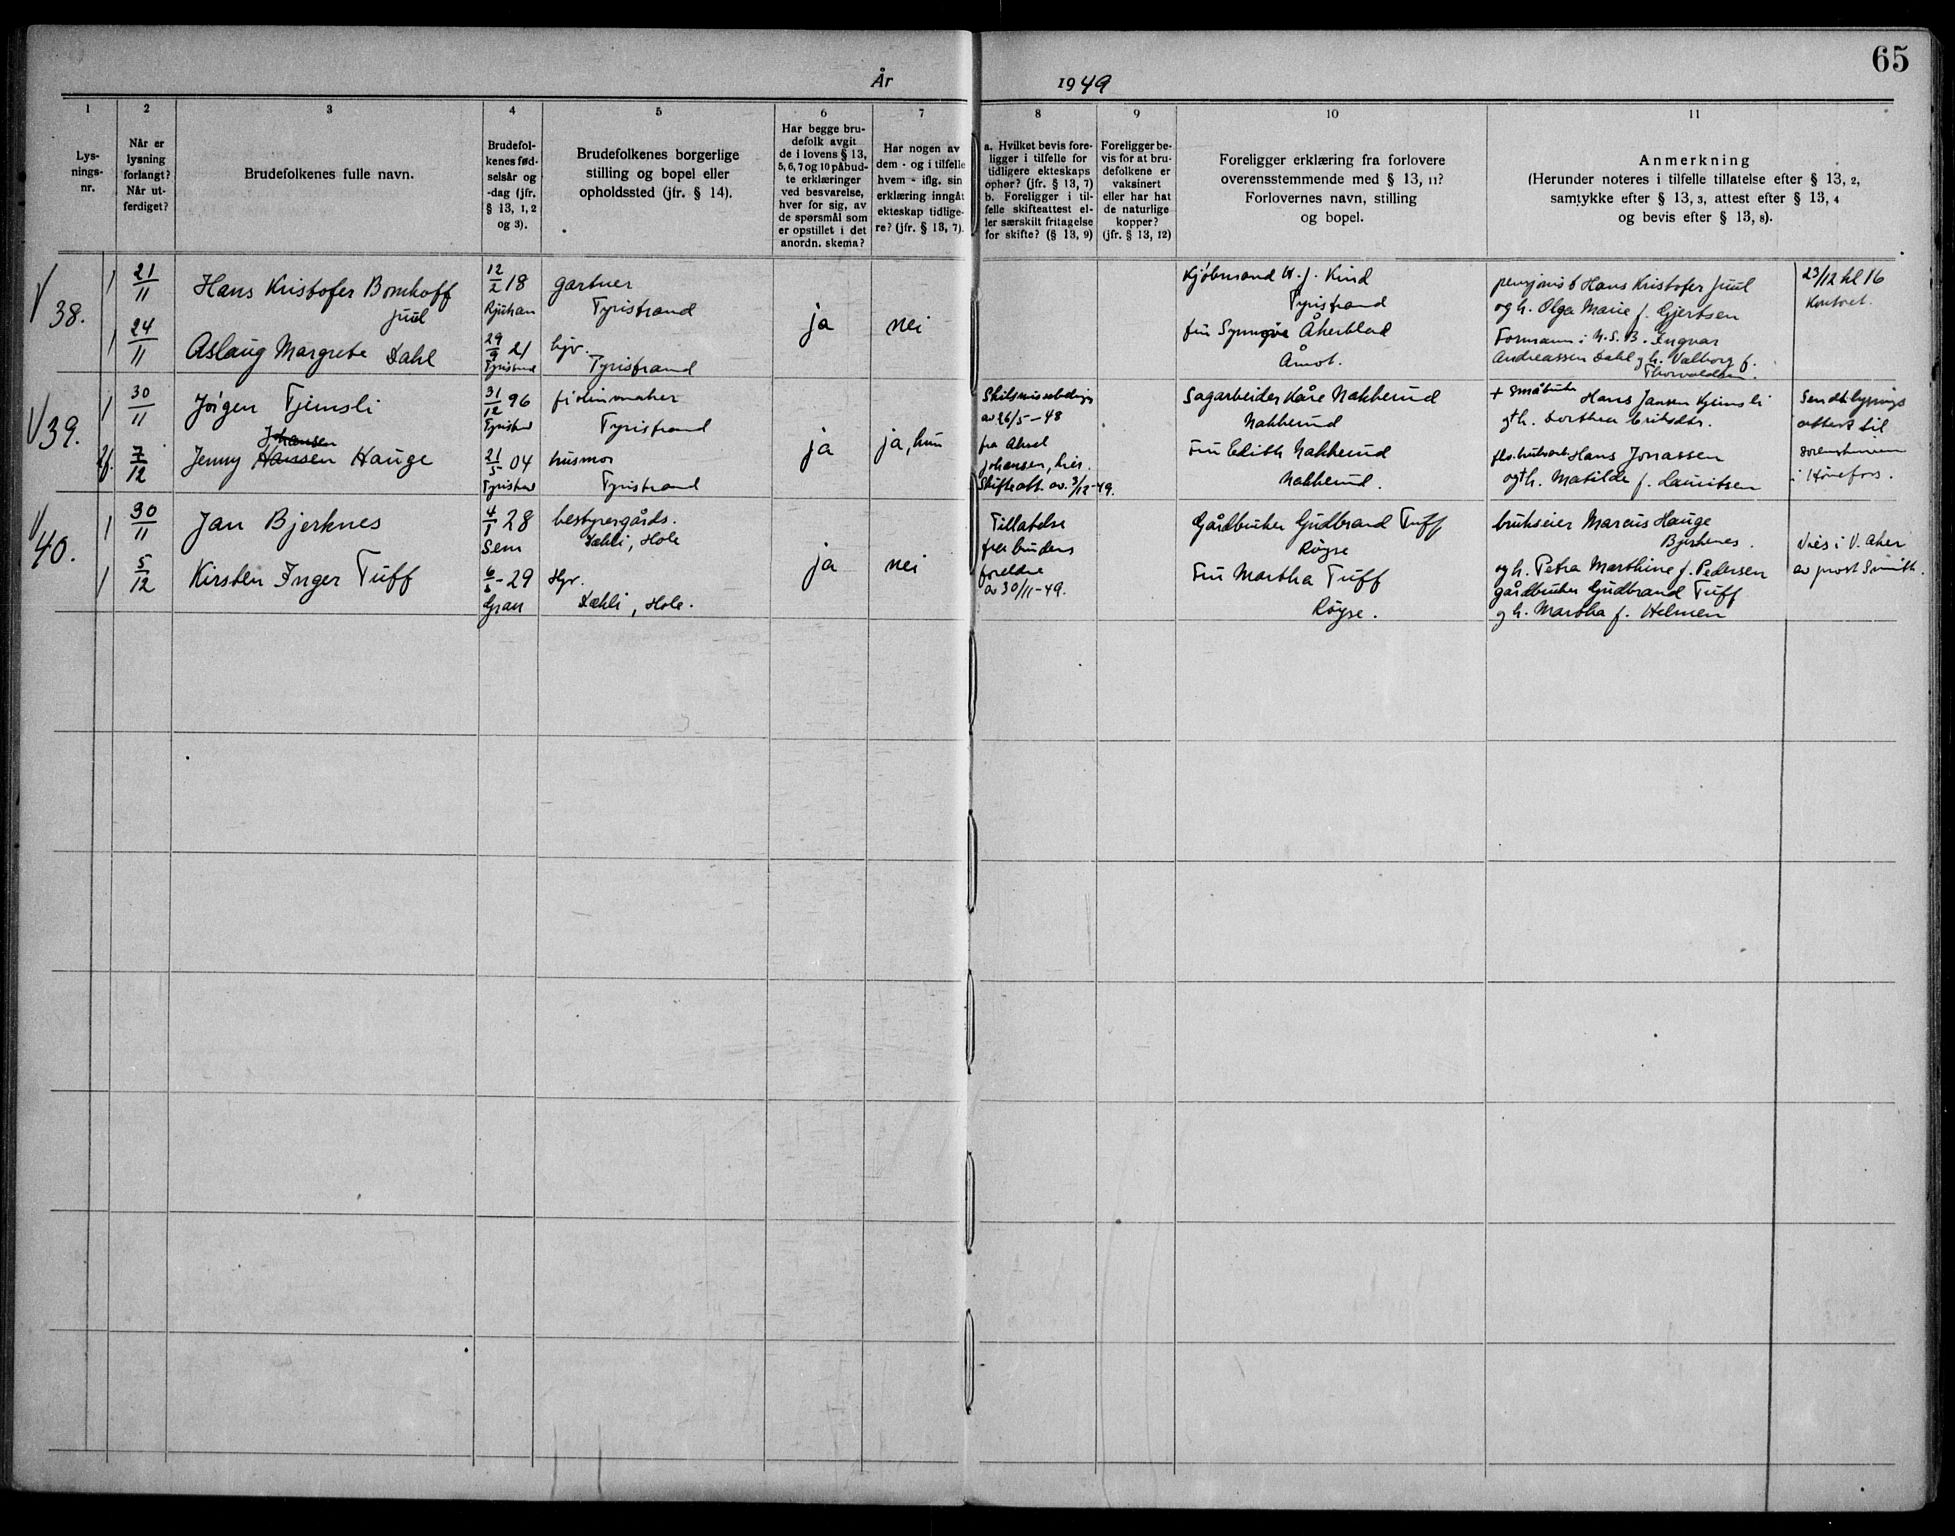 65
År 1949
1
Lys-
nings-
nr.
2
Når er
lysning
forlangt?
Når ut-
ferdiget?
3
Brudefolkenes fulle navn.
4
Brudefol-
kenes fød-
selsår og
-dag (jfr.
§ 13, 1, 2
og 3).
5
Brudefolkenes borgerlige
stilling og bopel eller
opholdssted (jfr. § 14).
6
Har begge bru-
defolk avgit
de i lovens § 13,
5, 6, 7 og 10 påbud-
te erklæringer
ved besvarelse,
hver for sig, av
de spørsmål som
er opstillet i det
anordn. skema?
7
Har nogen av
dem - og i tilfelle
hvem - iflg. sin
erklæring inngåt
ekteskap tidlige-
re? (jfr. § 13, 7).
8
a. Hvilket bevis fore-
ligger i tilfelle for
tidligere ekteskaps
ophør? (jfr. § 13, 7)
b. Foreligger i til-
felle skifteattest el-
ler særskilt fritagelse
for skifte? (§ 13, 9)
9
Foreligger be-
vis for at bru-
defolkene er
vaksinert
eller har hat
de naturlige
kopper?
(jfr. § 13, 12)
10
Foreligger erklæring fra forlovere
overensstemmende med § 13, 11?
Forlovernes navn, stilling
og bopel.
11
Anmerkning
(Herunder noteres i tilfelle tillatelse efter § 13, 2,
samtykke efter § 13, 3, attest efter § 13, 4
og bevis efter § 13, 8).
V 38.
1 21/11
Hans Kristofer Bomhoff
Juul
12/2 18
Rjukan
gartner
Tyristrand
1 24/11
Aslaug Margrete Dahl
29/9 21
Tyristrand
hjv.
Tyristrand
ja
nei
Kjøbmand H. J. Kind
Tyristrand
fru Synnøve Åkerblad
Åmot.
pensjonist Hans Kristofer Juul
og h. Olga Marie f. Gjertsen
Formann i N.S.B. Ingvar
Andreassen Dahl og h. Valborg f.
Thorvaldsen.
23/12 kl 16
Kontoret.
V 39.
1 30/11
Jørgen Tjimsli
31/12 96
Tyristrand
fiolinmaker
Tyristrand
2f. 7/12
Johansen
Jenny Hansen Hauge
21/5 04
Tyristrand
husmor
Tyristrand
ja
ja, hun
Skilsmissebevilgn
av 26/5-48
fra Aksel
Johansen, hier.
Skifteatt. av. 3/12-49.
Sagarbeider Kåre Nakkerud
Nakkerud
Fru Edith Nakkerud
Nakkerud.
+ Småbruker Hans Jansen Kjimsli
og h. Dorthea Eriksdtr.
Hans Jonassen
og h. Matilde f. Lauritsen
Sendt lysnings
attest til
sorenskriveren
i Hønefoss.
V 40.
1 30/11
Jan Bjerknes
4/1 28
Sem
bestyrergårds.
Dæhli, Hole
1 5/12
Kirsten Inger Tuff
6/6-29
Gran
Hjv.
Dæhli, Hole.
ja
nei
Tillatelse
fra brudens
foreldre
av 30/11-49.
Gårdbruker Gudbrand Tuff
Røyse
Fru Martha Tuff
Røyse.
brukseier Marcus Hauge
Bjerknes.
og h. Petra Marthine f. Pedersen
gårdbruker Gudbrand Tuff
og h. Martha f. Helmen
Vies i V. Aker
av prost Smith.